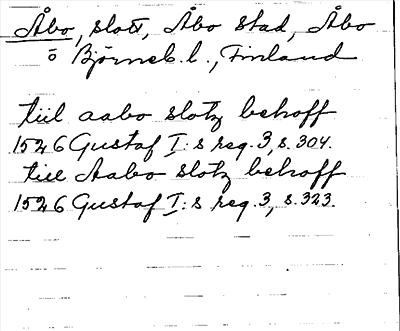 Åbo, slott, Åbo stad, Åbo
o Björneb. l., Finland
till aabo slotz behoff
1526 Gustaf I:s reg. 3, s. 304.
till Aabo slotz behoff
1526 Gustaf I:s reg. 3, s. 323.